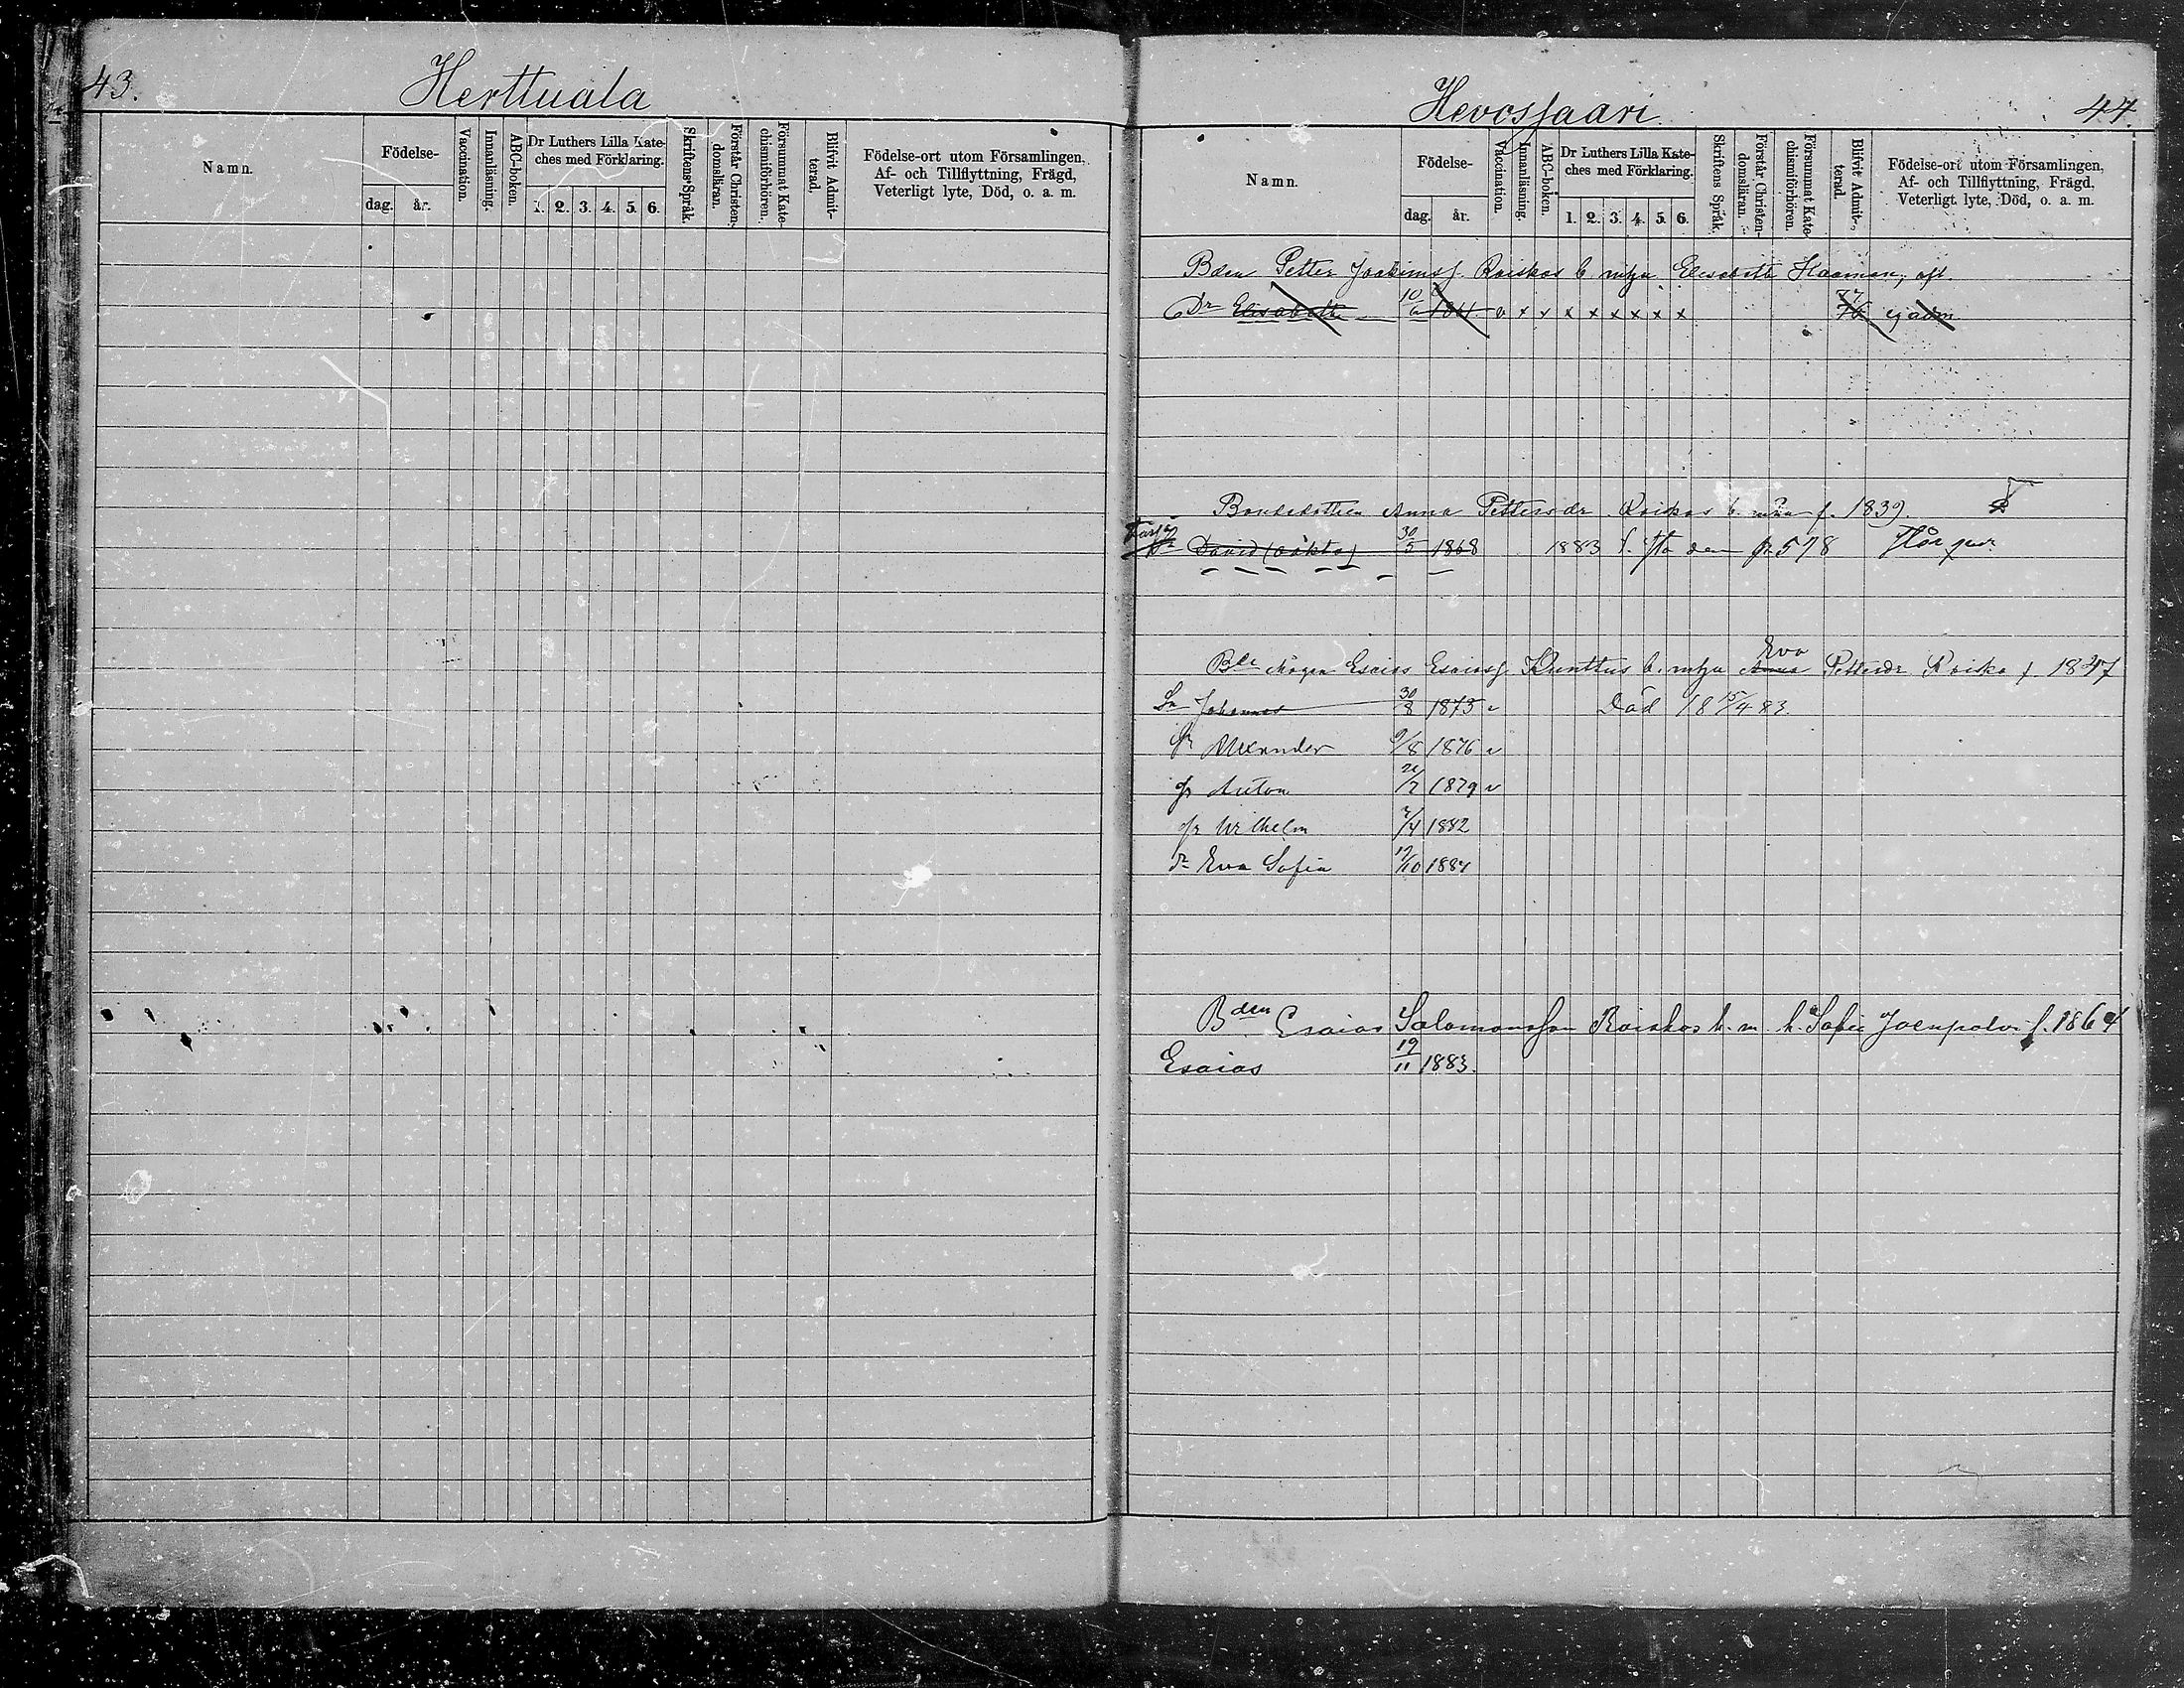 43.
Herttuala
Namn.
Födelse-
dag.
år.
Vaccination.
Innanläsning.
ABC-boken.
Dr Luthers Lilla Kate-
ches med Förklaring.
1. 2. 3. 4. 5. 6.
Skriftens Språk.
Förstår Christen-
domsläran.
Försummat Kate-
chismiförhören.
Blifvit Admit-
terad.
Födelse-ort utom Församlingen,
Af- och Tillflyttning, Frägd,
Veterligt lyte, Död, o. a. m.
Hevossaari
44.
Namn.
Födelse-
dag.
år.
Vaccination.
Innanläsning.
ABC-boken.
Dr Luthers Lilla Kate-
ches med Förklaring.
1. 2. 3. 4. 5. 6.
Skriftens Språk.
Förstår Christen-
domsläran.
Försummat Kate-
chismiförhören.
Blifvit Admit-
terad.
Födelse-ort utom Församlingen,
Af- och Tillflyttning, Frägd,
Veterligt lyte, Död, o. a. m.
Bden Petter Joakimsf. Roiskos b. Elisabeth
Dr Elisabeth 10/6 v x x x x x x x x 77
Bondedottren Anna Pettersdr Roiskos b. f. 1839.
David (oäkta) 30/5 1868 1883 578
Esaias Esaiasf. Kunttus b. mhu Eva Pettersdr Roisko f. 1847
Sn Johannes 30/8 1873 v Död 18 15/4 83.
Alexander 9/8 1876 v
Anton 21/7 1879 v
Wilhelm 7/4 1882
Dr Eva Sofia 19/10 1884
Bden Esaias Salomonsson Roiskos b. m. h. Sofia f. 1864
Esaias 19/11 1883.